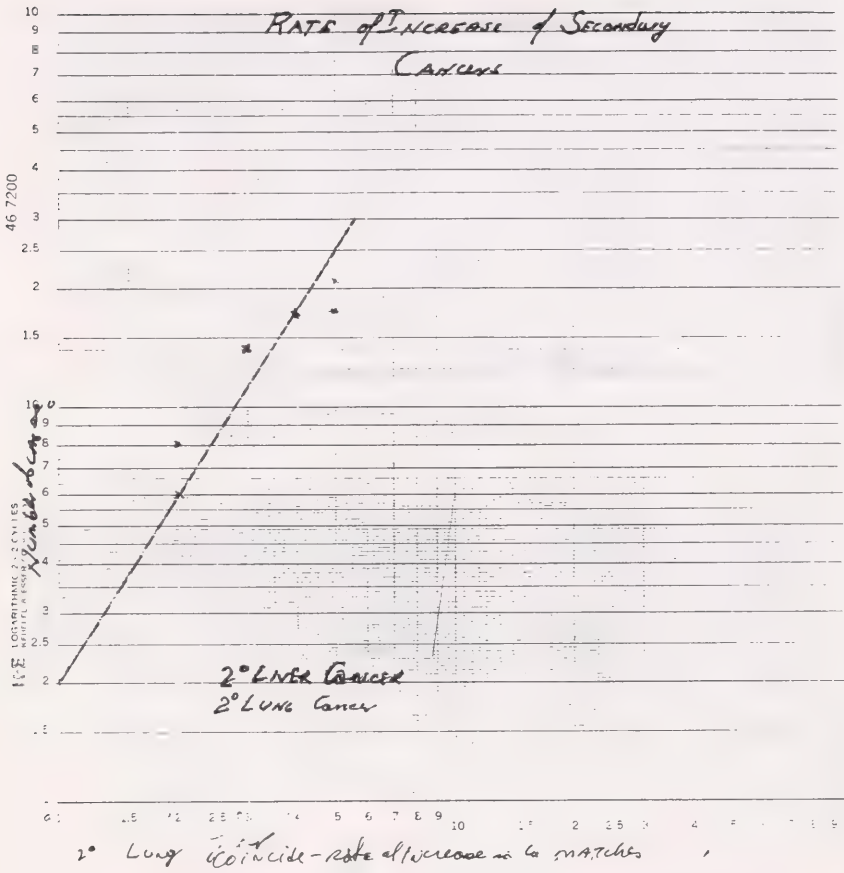 RATE of INCREASE of SECONDARY
CANCERS
10
9
8
7
6
5
4
3
2.5
2
1.5
10
9
8
7
6
5
4
3
2.5
2
46 7200
Number of
LOGARITHMIC 2 2 CYCLES
K-E
2° LIVER CANCER
2° LUNG Cancer
1.5 2 2.5 3 4 5 6 7 8 9 10 1.5 2 2.5 3 4 5
2° LUNG coincide - Rate of increase in MATCHES